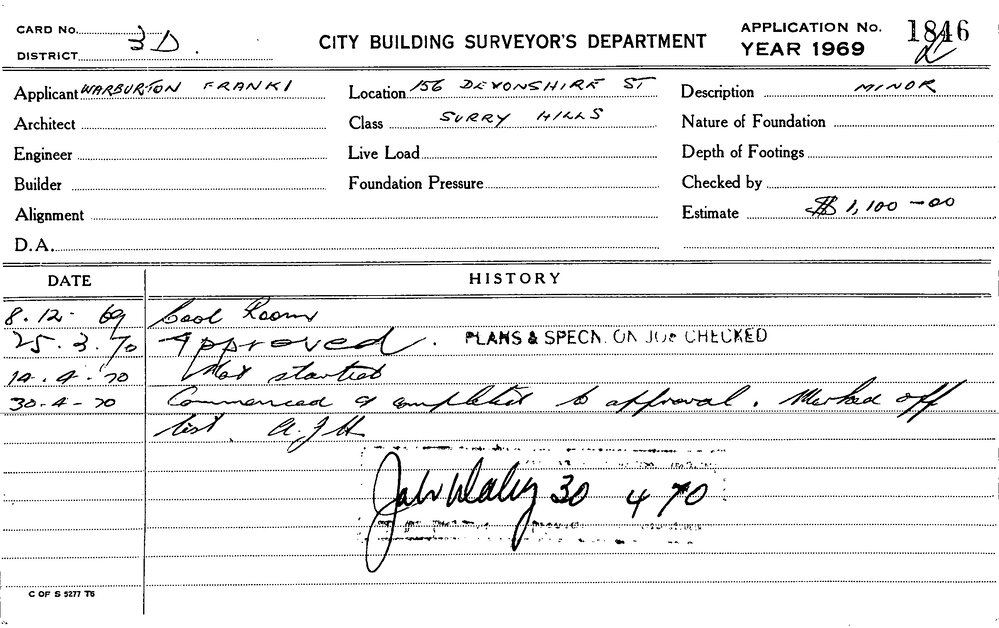 CARD No.
DISTRICT 3D.
CITY BUILDING SURVEYOR'S DEPARTMENT
APPLICATION No. 1846
YEAR 1969
Applicant WARBURTON FRANKI
Location 156 DEVONSHIRE ST
Description MINOR
Architect
Class SURRY HILLS
Nature of Foundation
Engineer
Live Load
Depth of Footings
Builder
Foundation Pressure
Checked by
Alignment
Estimate $1,100-00
D.A.
DATE HISTORY
8.12.69 Cool Room
25.3.70 Approved. PLANS & SPECN. ON JOB CHECKED
14.4.70 Not started
30-4-70 Commenced & completed to approval. Marked off
list. A.J.H.
30 4 70
C OF S 5277 T5